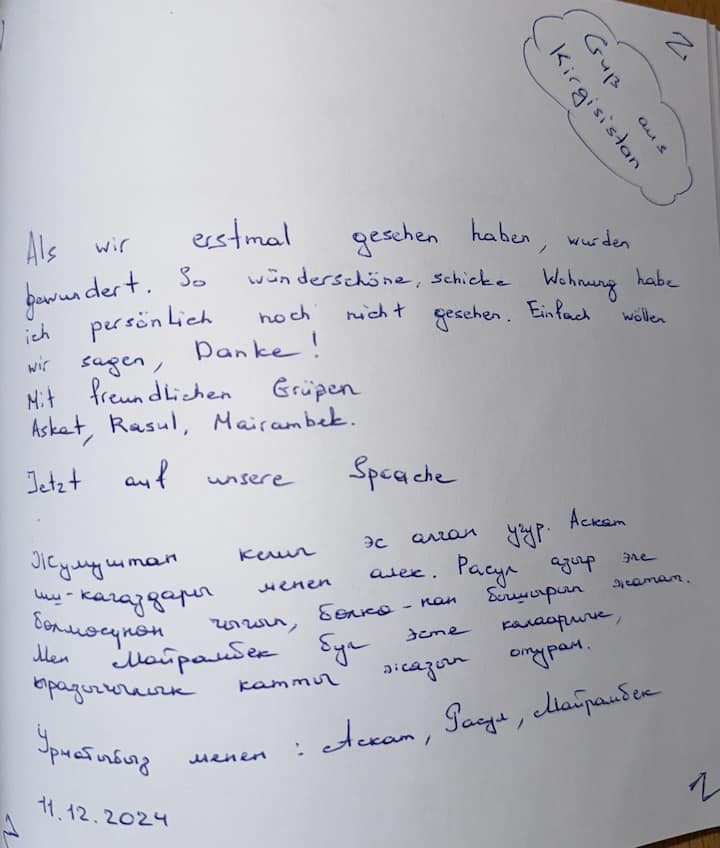 Gruß aus
Kirgisistan
Als wir erstmal gesehen haben, wurden
bewundert. So wünderschöne, schicke Wohnung habe
ich persönlich noch nicht gesehen. Einfach wöllen
wir sagen, Danke!
Mit freundlichen Grüßen
Askat, Rasul, Mairambek.
Jetzt auf unsere Sprache
Жумуштан келип эс алган учур. Аскат
иш-кагаздары менен алек. Расул азыр эле
бөлмөсүнөн чыгып, бөлкө-нан бышырып жатат.
Мен Майрамбек бул эсте калаарлык,
ыраазычылык каттын жазып отурам.
Урматыбыз менен: Аскат, Расул, Майрамбек
11.12.2024